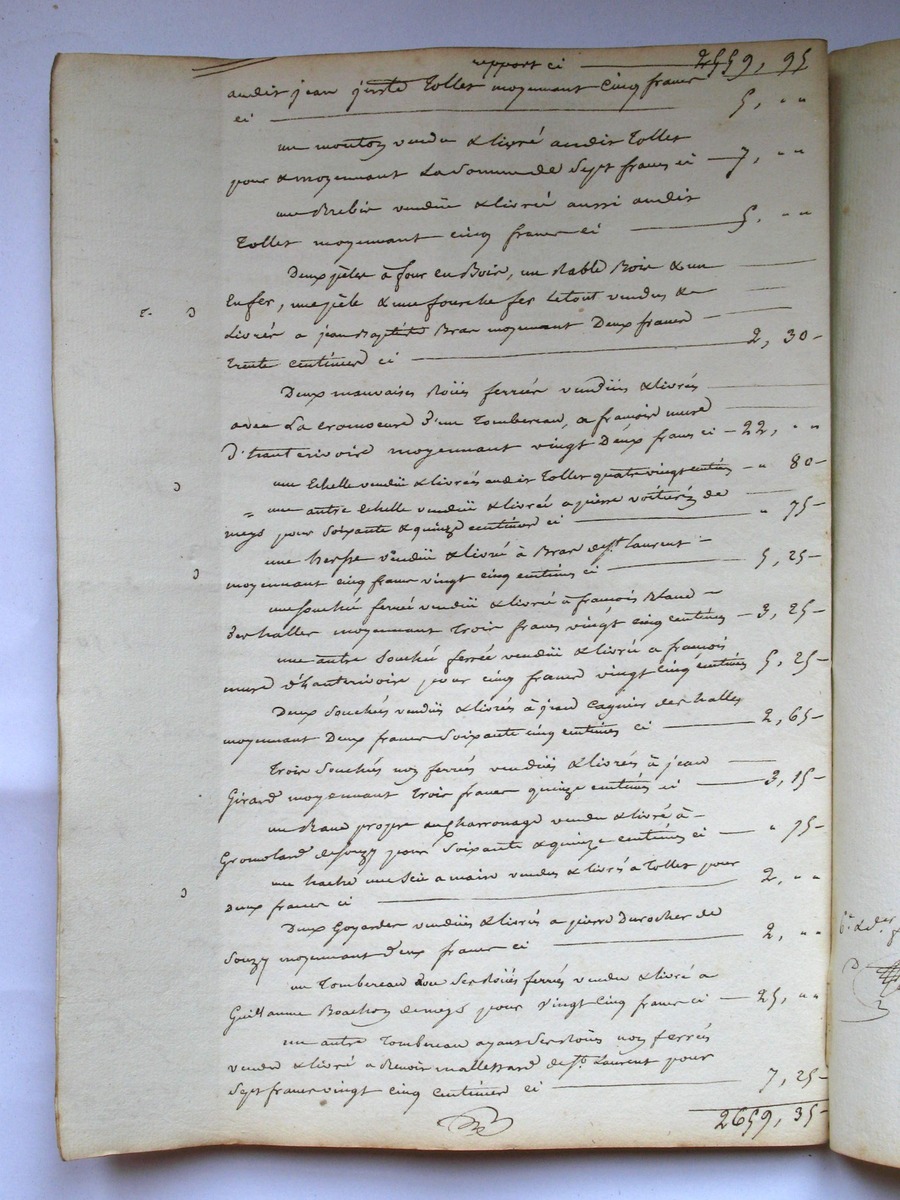 report ci 2559, 95
audit jean juste Tollet moyennant Cinq francs
ci 5, " "
un mouton vendu & livré audit Tollet
pour & moyennant La Somme de Sept francs ci 7, " "
une Brebis vendüe & livrée aussi audit
Tollet moyennant cinq francs ci 5, " "
Deux pèles à four en Bois, un Rable Bois & un
Enfer, une pèle & une fourche fer le tout vendus &
Livrés a jean Baptiste Bras moyennant Deux francs
trente centimes ci 2, 30
Deux mauvaises Roües ferrées vendües & livrés
avec La d'un Tombereau, a françois mure
D'hauterivoire moyennant vingt Deux francs ci 22, " "
une Echelle vendüe & livrée audit Tollet quatre vingt centimes " 80
une autre Echelle vendüe & livrée a pierre de
meys pour Soixante & quinze centimes ci " 75
une herse vendüe & livré à Bras de St. Laurent
moyennant cinq francs vingt cinq centimes ci 5, 25
une ferrée vendüe & livré à françois Blanc
des halles moyennant Trois francs vingt cinq centimes 3, 25
une autre ferrée vendüe & livrée a françois
mure d'hauterivoire pour cinq francs vingt cinq centimes 5, 25
Deux vendües & livrés à jean des halles
moyennant Deux francs Soixante cinq centimes ci 2, 65
Trois non ferrés vendües & livrés à jean
Girard moyennant Trois francs quinze centimes ci 3, 15
un propre au Charronage vendu & livré à
de Souzy pour Soixante & quinze centimes ci " 75
une hache une Scie a main vendus & livrés a Tollet pour
deux francs ci 2, " "
Deux Goyardes vendües & livrés a pierre Durocher de
Souzy moyennant deux francs ci 2, " "
un Tombereau avec Ses Roües ferrés vendu & livré a
Guillaume de meys pour vingt Cinq francs ci 25, " "
un autre Tombereau ayant Ses Roües non ferrés
vendu & livré a Benoit de St. Laurent pour
Sept francs vingt cinq centimes ci 7, 25
2659, 35